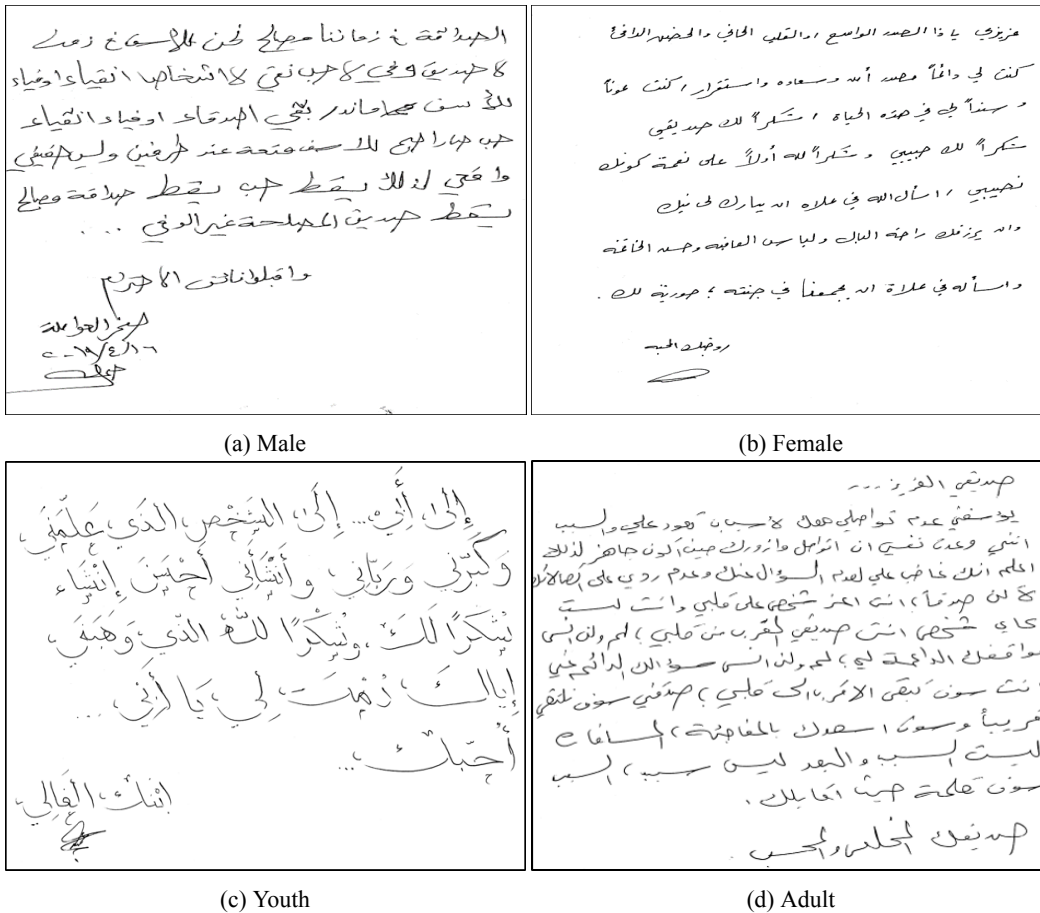 الصداقة في زماننا مصالح نحن للاسف في زمن
لا صديق وفي لا حب نقي لا اشخاص انقياء اوفياء
للأسف نادر بقي اصدقاء اوفياء انقياء
حب صار اصبح للاسف متعة عند طرفين وليس حقيقي
واقعي لذلك يسقط حب يسقط صداقة مصالح
يسقط صديق المصلحة غير الوفي ....
واقبلوا فائق الاحترام
(a) Male
عزيزي يا ذا الصدر الواسع ، والقلب الحاني والحضن الدافئ
كنت لي دائماً مصدر أمن وسعاده واستقرار ، كنت عوناً
وسنداً لي في هذه الحياة ، شكراً لك صديقي
شكراً لك حبيبي وشكراً لله أولاً على نعمة كونك
نصيبي ، اسأل الله في علاه ان يبارك لي فيك
وان يرزقك راحة البال ولباس العافيه وحسن الخاتمه
واسأله في علاه ان يجمعنا في جنته ؛ حورية لك .
زوجتك المحبه
(b) Female
إِلى أَبِي... إِلَى الشَّخْصِ الذَي عَلَّمَنَي،
وَكَبَّرَنِي وَرَبَّانِي، وأَنْشَأَنِي أَحْسَنَ إِنْشَاء
شُكْرًا لَكَ، وشُكْرًا للَّه الذّي وَهَبَنَي
إيّاكَ، دُمْتَ لِي، يَا أَبَي، ...
أُحَبّكَ،...
ابْنَك، الْغَالِي،
(c) Youth
صديقي العزيز ...
يؤسفني عدم تواصلي معك لأسباب تعود علي والسبب
انني وعدت نفسي ان اتواصل وازورك حين اكون جاهز لذلك
اعلم انك غاضب علي لعدم السؤال عنك وعدم ردي على اتصالاتك
لأكن صدقاً، انت اعز شخص على قلبي وانت لست
كأي شخص انت صديقي المقرب من قلبي ، لم ولن انسى
مواقفك الداعمة لي ، لم ولن انسى سؤالك الدائم عني
انت سوف تبقى الاقرب الى قلبي ، صدقني سوف نلتقي
قريباً وسوف اسعدك بالمفاجئة ، المسافات
ليست السبب والبعد ليس سبب ، السبب
سوف تعلمة حين اقابلك .
صديقك المخلص والمحب .
(d) Adult